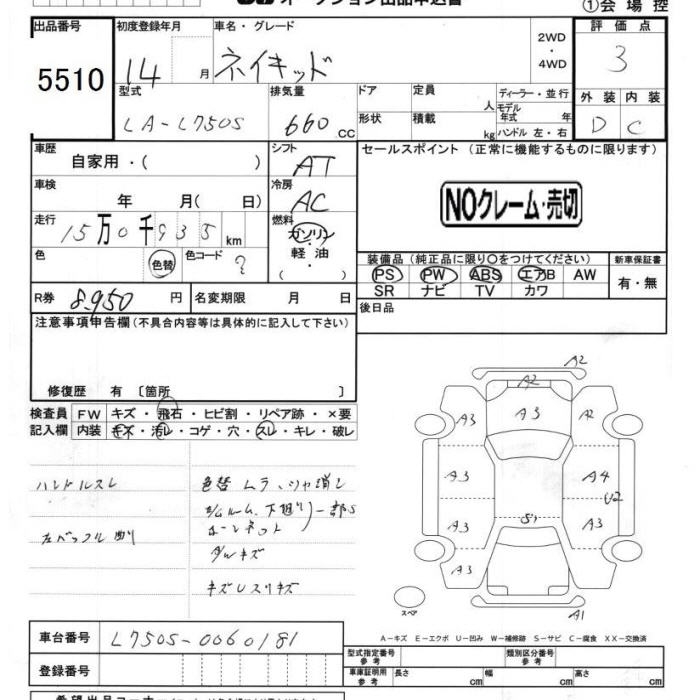 オークション出品申込書
①会場控
出品番号
5510
初度登録年月
14 月
車名・グレード
ネイキッド
2WD
・
4WD
評価点
3
外装 内装
D C
型式
LA-L750S
排気量
660 CC
ドア
形状
定員 人
積載 kg
ディーラー・並行
モデル
年式 年
ハンドル 左・右
車歴
自家用・( )
シフト
AT
セールスポイント(正常に機能するものに限ります)
NOクレーム・売切
車検
年 月( 日)
冷房
AC
走行
15万0千935km
燃料
ガソリン
・
軽油
・
( )
色
色替
色コード
?
装備品(純正品に限り○をつけてください)
新車保証書
PS PW ABS エアB AW
SR ナビ TV カワ
有・無
R券 8,950 円
名変期限 月 日
後日品
注意事項申告欄(不具合内容等は具体的に記入して下さい)
修復歴 有〔箇所 〕
検査員
記入欄
FW キズ・飛石・ヒビ割・リペア跡・×要
内装 キズ・汚レ・コゲ・穴・スレ・キレ・破レ
ハンドルスレ
色替 ムラ
下廻り
キズ
A2
A2
A3 A3 A2
A3 A4
U2
A3 S1 A3
A3
A1
スペア
A−キズ E−エクボ U−凹み W−補修跡 S−サビ C−腐食 XX−交換済
車台番号
L750S-0060181
登録番号
型式指定番号
参考
類別区分番号
参考
車庫証明用
参考
長さ cm
幅 cm
高さ cm
希望出品コーナー